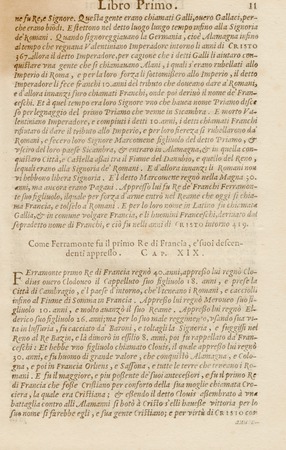 Libro Primo. 11
ne fu Re, e Signore. Questa gente erano chiamati Galli, ouero Gallaci, per-
che erano biõdi. E stettono nel detto luogo lungo tempo insino alla Signoria
de Romani. Quando signoreggiauano la Germania, cioè Alamagna insino
al tempo che regnaua Valentiniano Imperadore intorno li anni di CRISTO
367. allora il detto Imperadore, per cagione che i detti Galli li aiutaro con-
quistare una gente che si chiamauano, Alani, i quali erano rubellati allo
Imperio di Roma, e per la loro forza li sottomissero allo Imperio, il detto
Imperadore li fece franchi 10. anni del tributo che doueano dare a' Romani,
e d'allora innanzi foro chiamati Franchi, onde poi è diriuato il nome de' Fran-
ceschi. Et à quel tempo era loro Signore uno che hauea nome Priamo disce-
so per legnaggio del primo Priamo che uenne in Sicambra. E morto Va-
lentiniano Imperadore, e compiuti i detti 10. anni, i detti chiamati Franchi
rifiutaro di dare il tributo allo Imperio, e per loro fierezza si rubellarono da'
Romani, e fecero loro Signore Marcomene figliuolo del detto Priamo, &
uscirò del loro paese Sicambro, & entraro in Alamagna, & in quella con-
quistaro Città, e Castella assai tra il Fiume del Danubio, e quello del Reno,
laquale erano alla Signoria de' Romani. E d'allora innanzi li Romani non
vi hebbono libera Signoria. E'l detto Marcomene regnò nella Magna 30.
anni, ma ancora erano Pagani. Appresso lui fu Re de' Franchi Ferramon-
te suo figliuolo, ilquale per forza d'arme entrò nel Reame che oggi si chia-
ma Francia, e tolselo a Romani. E per lo loro nome in Latino fu chiamata
Gallia, & in comune volgare Francia, e li huomini Franceschi, deriuato dal
sopradetto nome di Franchi, e ciò fu nelli anni di CRISTO intorno 419.
Come Ferramonte fu il primo Re di Francia, e' suoi descen-
denti appresso. CAP. XIX.
FErramonte primo Re di Francia regnò 40. anni, appresso lui regnò Clo-
dius ouero Clodoueo il Cappelluto suo figliuolo 18. anni, e prese la
Città di Cambragio, e'l paese d'intorno, che'l teneano i Romani, e cacciolli
infino al Fiume di Somma in Francia. Appresso lui regnò Meroueo suo fi-
gliuolo 10. anni, e molto auanzò il suo Reame. Appresso lui regnò El-
derico suo figliuolo 26. anni; ma per lo suo male reggimento, usando sua ui-
ta in lussuria, fu cacciato da' Baroni, e toltagli la Signoria, e fuggissi nel
Reno al Re Bazio, e là dimorò in essilio 8. anni, poi fu rappellato da' Fran-
ceschi: Et hebbe uno figliuolo chiamato Clouis, il quale appresso lui regnò
30. anni, e fu huomo di grande valore, che conquistò Alamagna, e Colo-
gna, e poi in Francia Orliens, e Sassona, e tutte le terre che teneano i Ro-
mani. E fu il maggiore, e piu possente de' suoi antecessori, e fu il primo Re
di Francia che fosse Cristiano per conforto della sua moglie chiamata Cro-
ciera, la quale era Cristiana; & essendo il detto Clouis assembrato à una
battaglia contro alli Alamanni si botò à Cristo s'elli hauesse uittoria per lo
suo nome si farebbe egli, e sua gente Cristiano; e per virtù di CRISTO con-